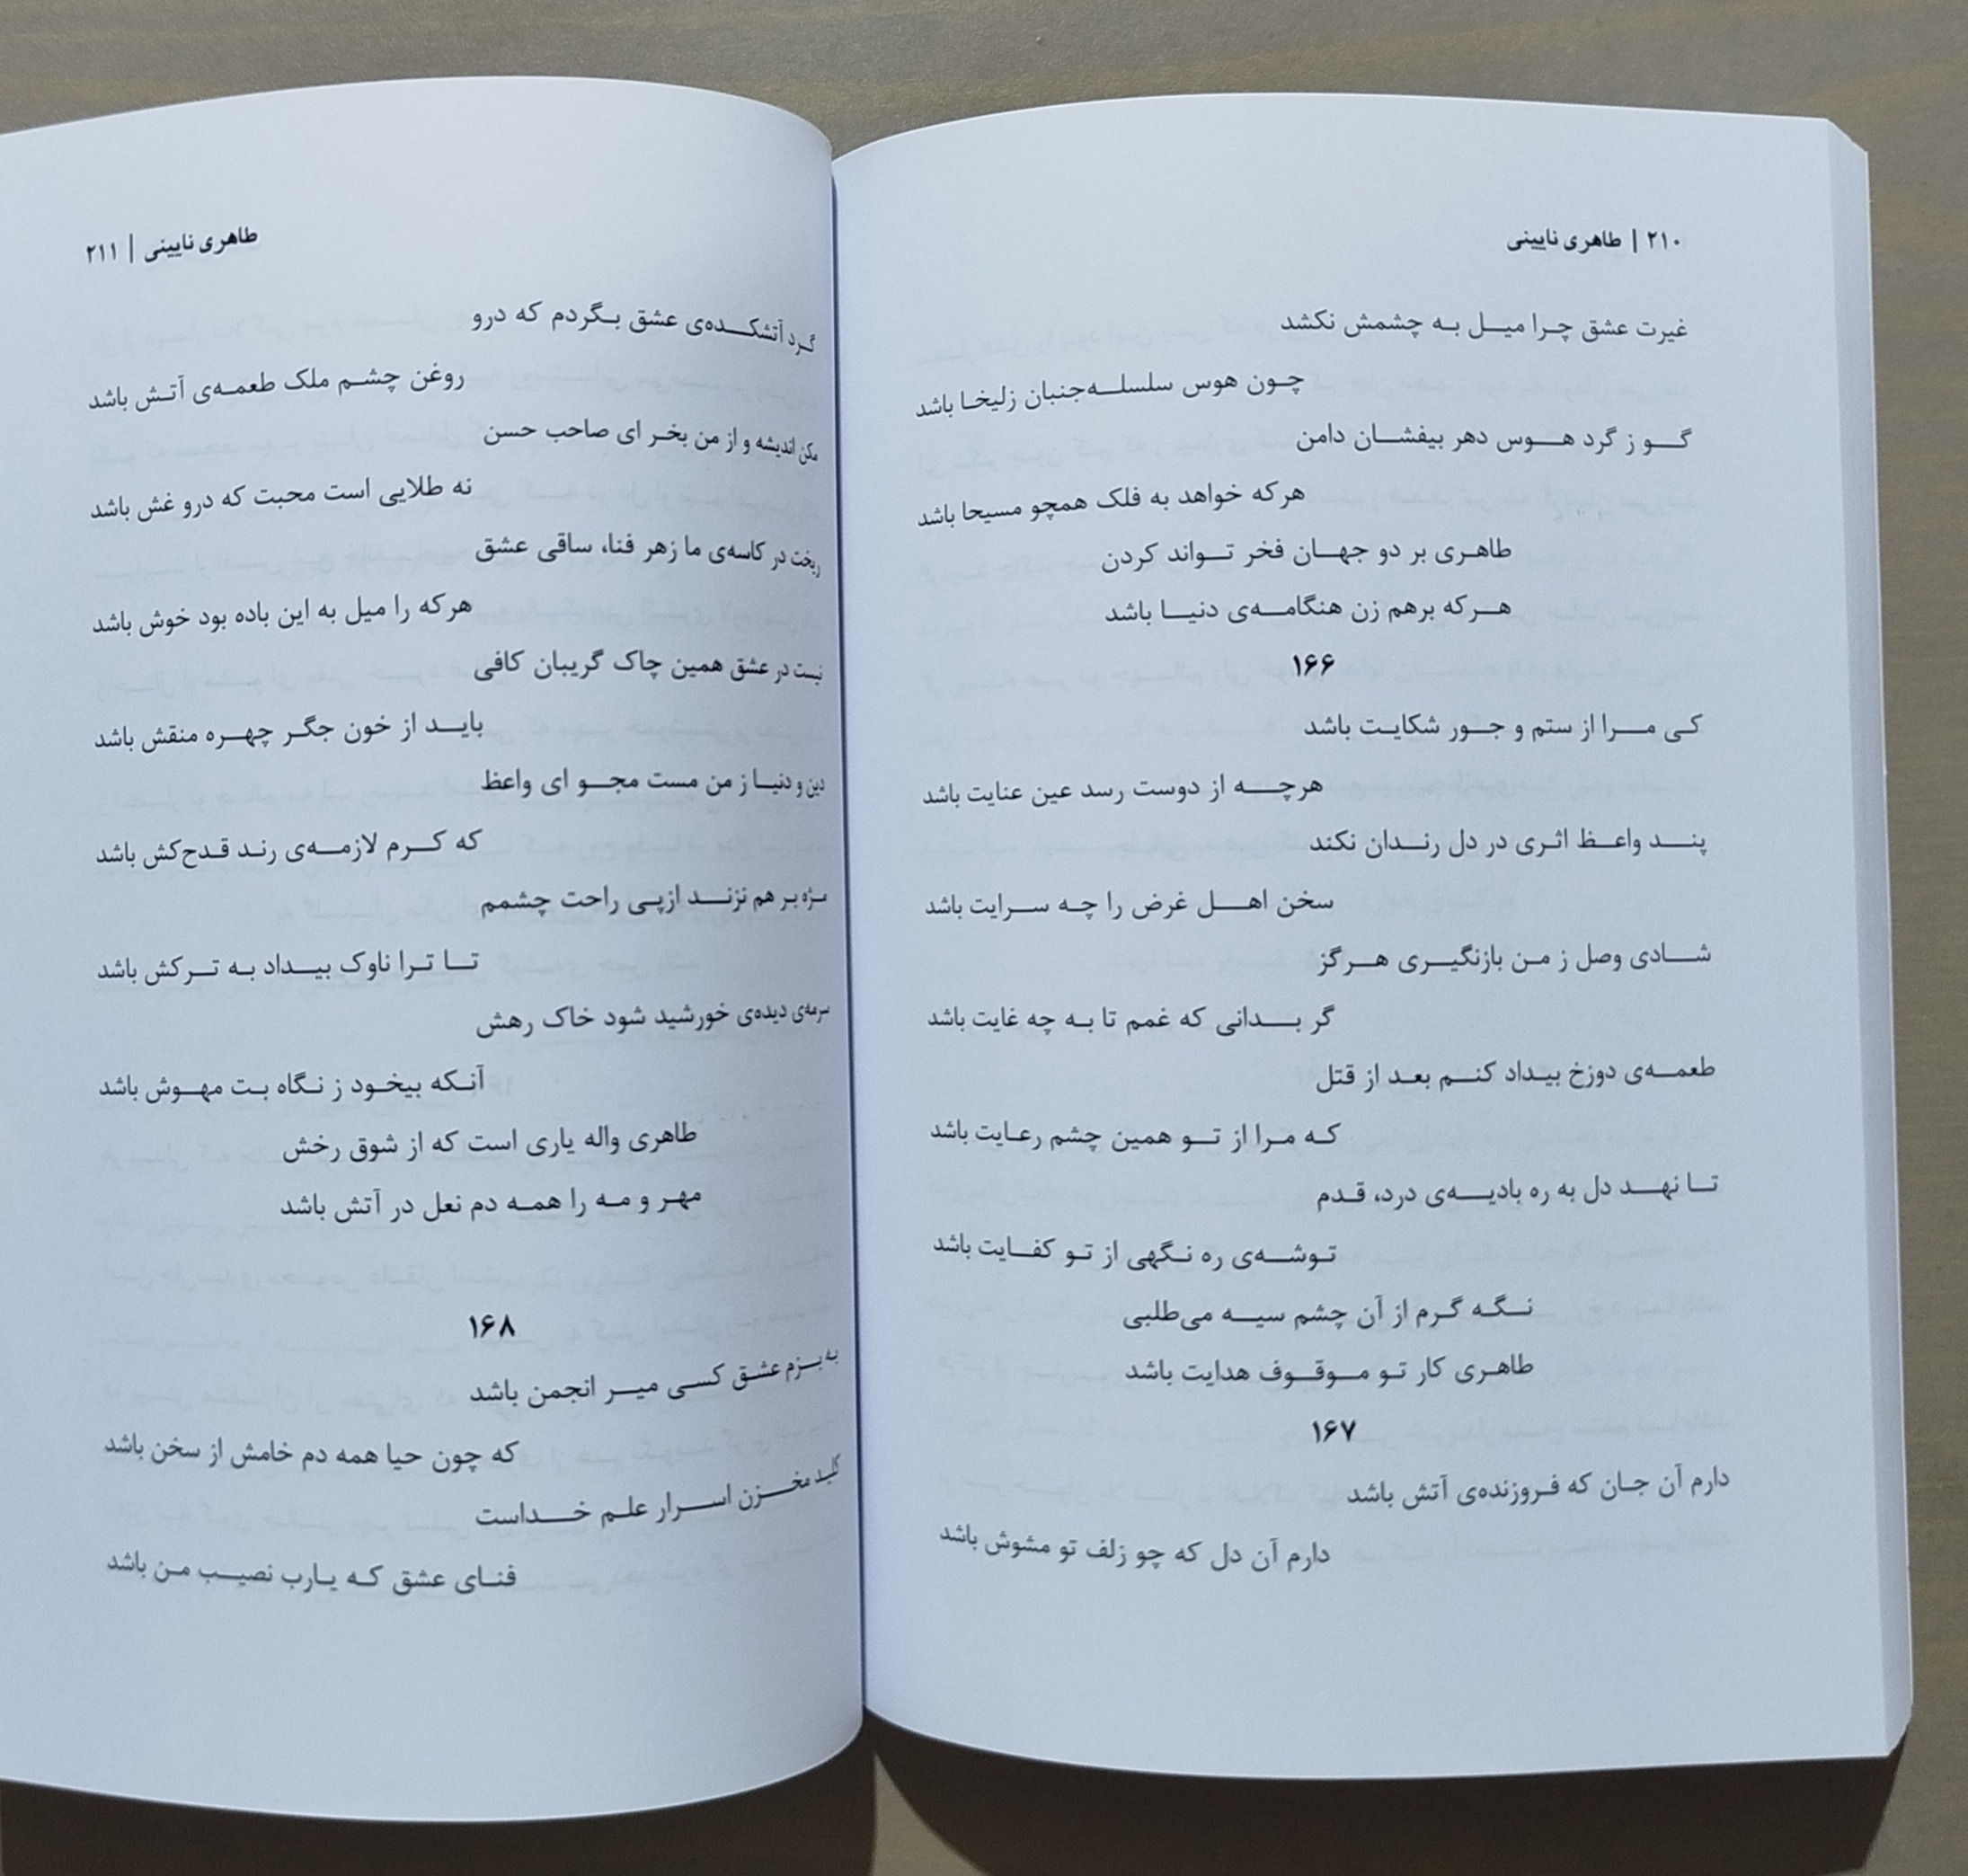 ۲۱۰ | طاهری نایینی
غیرت عشق چرا میل به چشمش نکشد
چون هوس سلسله‌جنبان زلیخا باشد
گو ز گرد هوس دهر بیفشان دامن
هرکه خواهد به فلک همچو مسیحا باشد
طاهری بر دو جهان فخر تواند کردن
هرکه برهم زن هنگامه‌ی دنیا باشد
۱۶۶
کی مرا از ستم و جور شکایت باشد
هرچه از دوست رسد عین عنایت باشد
پند واعظ اثری در دل رندان نکند
سخن اهل غرض را چه سرایت باشد
شادی وصل ز من بازنگیری هرگز
گر بدانی که غمم تا به چه غایت باشد
طعمه‌ی دوزخ بیداد کنم بعد از قتل
که مرا از تو همین چشم رعایت باشد
تا نهد دل به ره بادیه‌ی درد، قدم
توشه‌ی ره نگهی از تو کفایت باشد
نگه گرم از آن چشم سیه می‌طلبی
طاهری کار تو موقوف هدایت باشد
۱۶۷
دارم آن جان که فروزنده‌ی آتش باشد
دارم آن دل که چو زلف تو مشوش باشد
طاهری نایینی | ۲۱۱
گرد آتشکده‌ی عشق بگردم که درو
روغن چشم ملک طعمه‌ی آتش باشد
مکن اندیشه و از من بخر ای صاحب حسن
نه طلایی است محبت که درو غش باشد
ریخت در کاسه‌ی ما زهر فنا، ساقی عشق
هرکه را میل به این باده بود خوش باشد
نیست در عشق همین چاک گریبان کافی
باید از خون جگر چهره منقش باشد
دین و دنیا ز من مست مجو ای واعظ
که کرم لازمه‌ی رند قدح‌کش باشد
مژه بر هم نزند ازپی راحت چشمم
تا ترا ناوک بیداد به ترکش باشد
سرمه‌ی دیده‌ی خورشید شود خاک رهش
آنکه بیخود ز نگاه بت مهوش باشد
طاهری واله یاری است که از شوق رخش
مهر و مه را همه دم نعل در آتش باشد
۱۶۸
به بزم عشق کسی میر انجمن باشد
که چون حیا همه دم خامش از سخن باشد
کلید مخزن اسرار علم خداست
فنای عشق که یارب نصیب من باشد